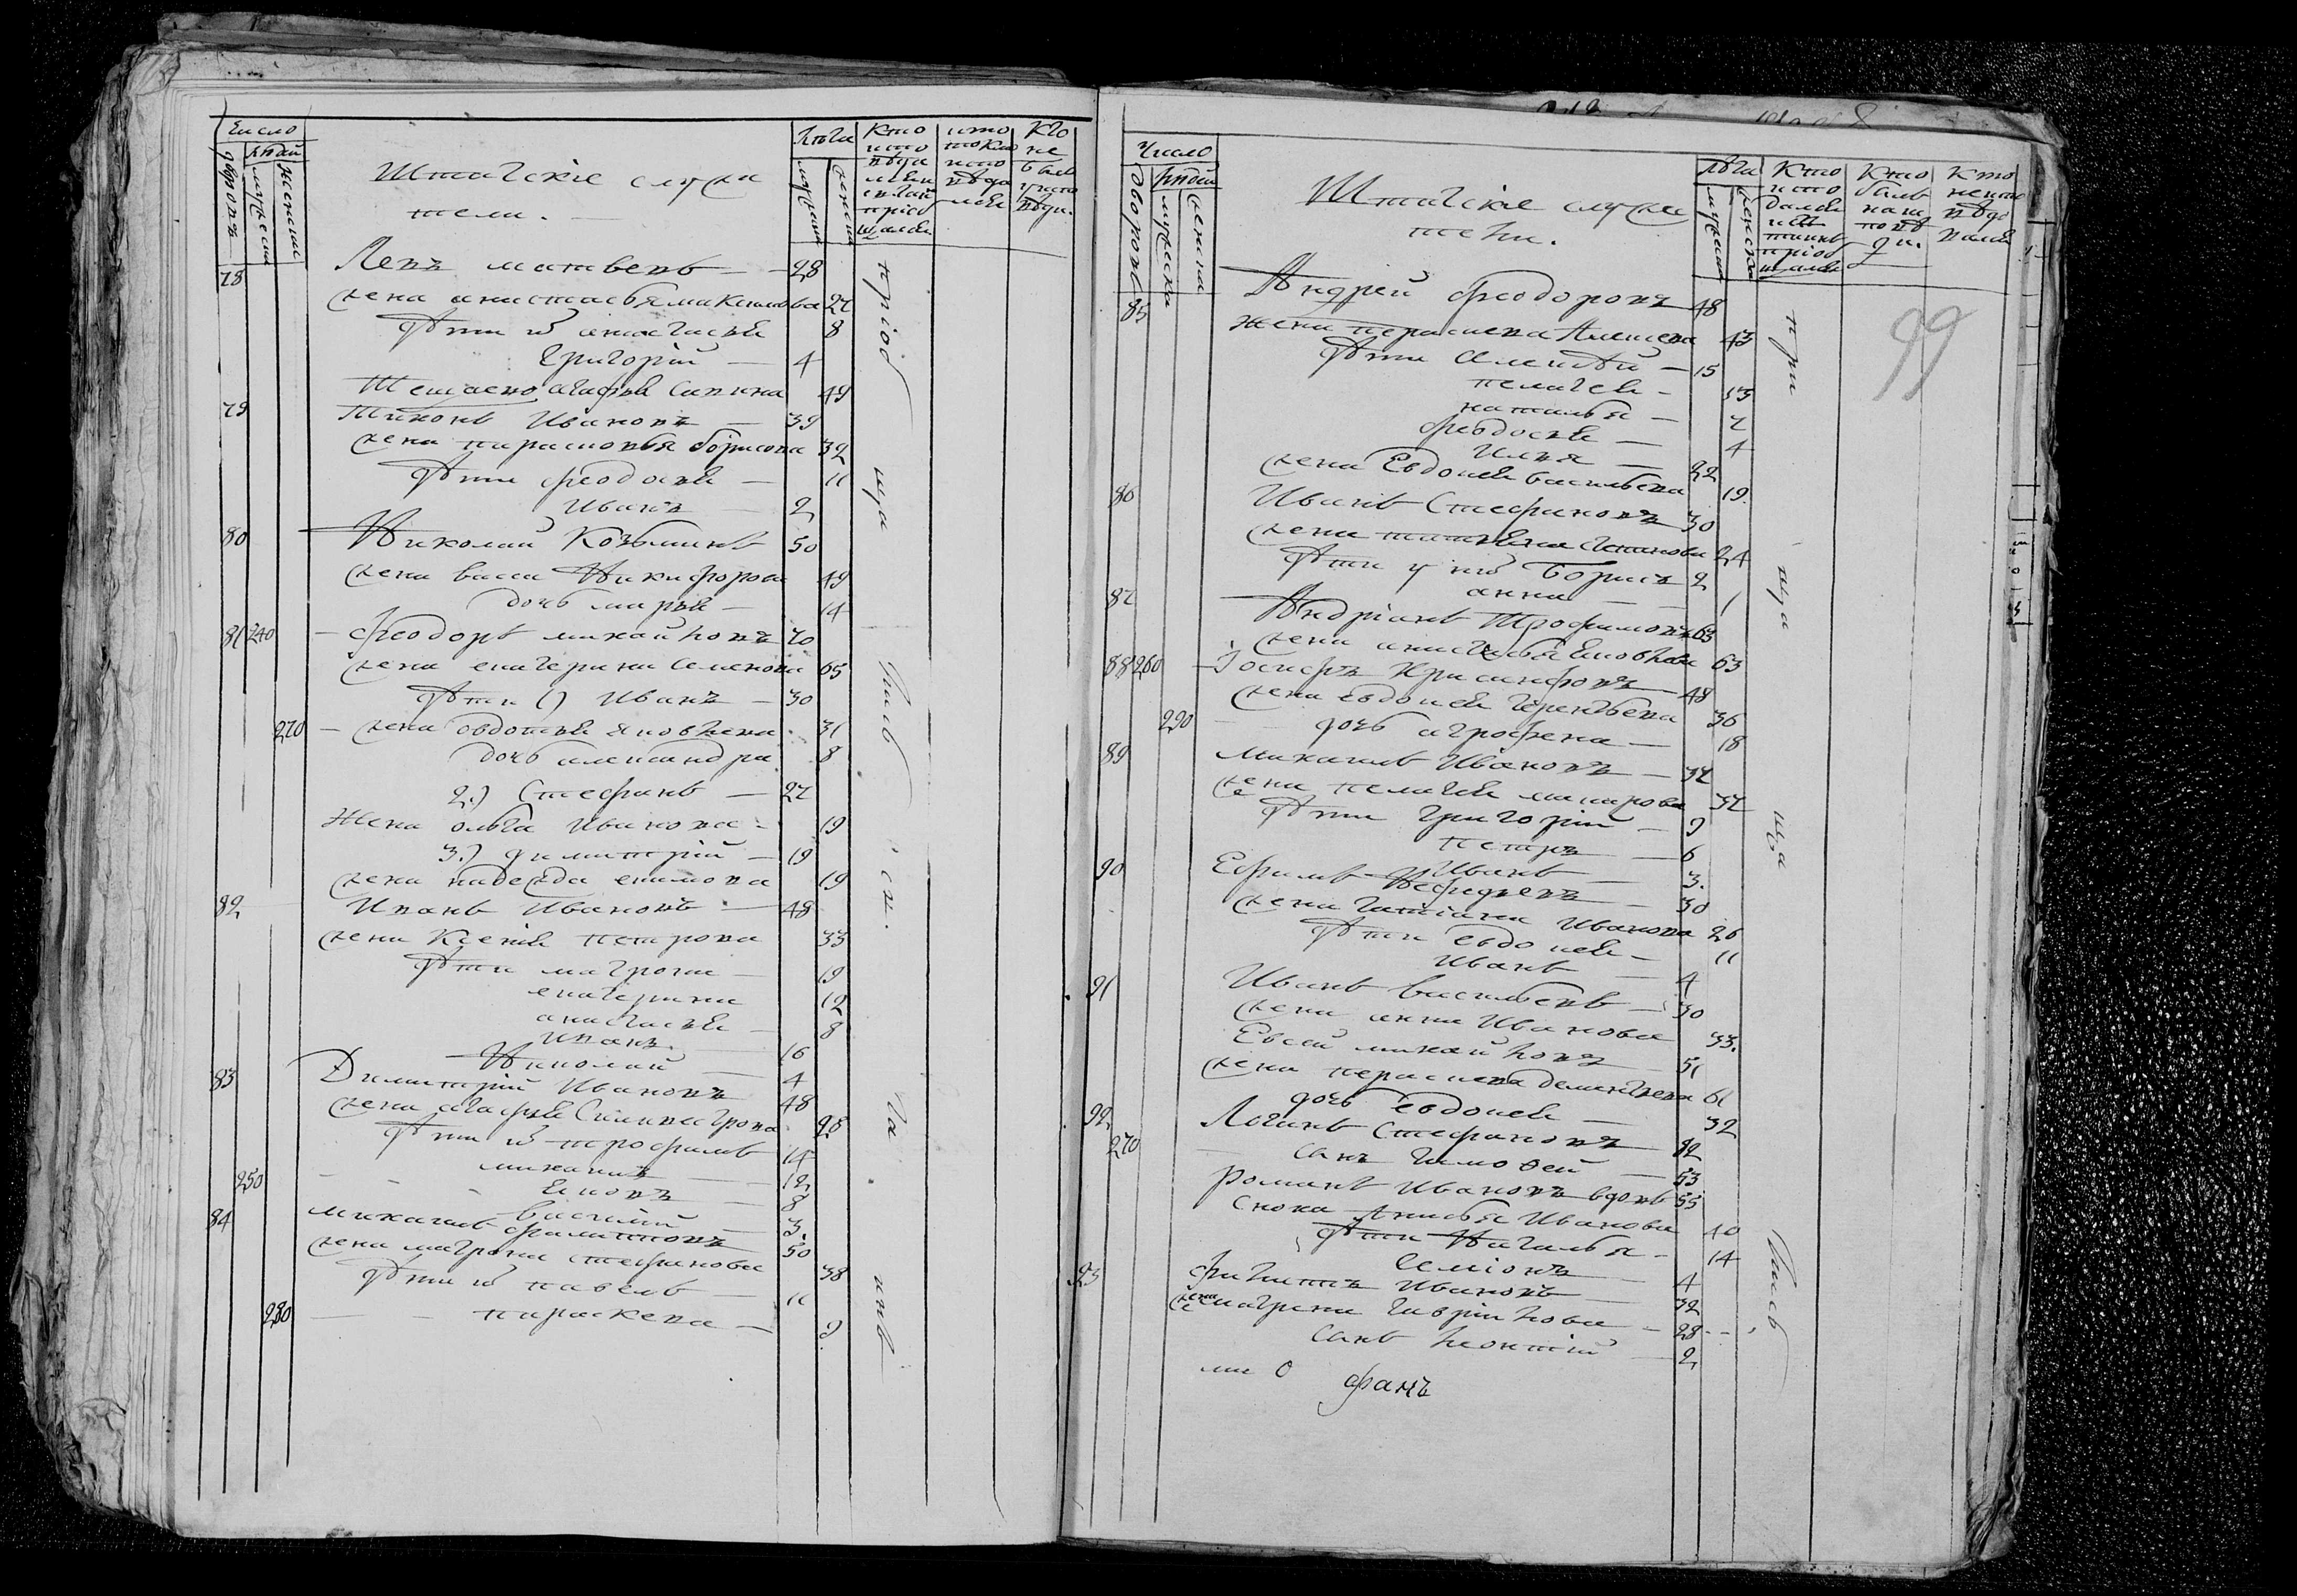 Число
дворовъ
людей
мужескихъ
женскихъ
Штатскіе служи
тели.
Лѣта
Кто
испо
вѣды
вали
Кто
не
былъ
78 Левъ матвеевъ 28
жена анастасья максимова 27
Дѣти их анастасия 8
Григорій 4
Теща ево агафья Савина 49
79 Тихонъ Ивановъ 39
жена парасковья борисова 32
Дѣти феодосия 11
Иванъ 2
80 Николай Козьминъ 50
жена васса Никифорова 49
дочь марья 14
81 240 Феодоръ михайловъ 70
жена екатерина семенова 65
Дѣти 1) Иванъ 30
270 жена евдокия яковлева 31
дочь александра 8
2.) Стефанъ 27
Жена ольга Иванова 19
3.) димитрій 19
жена надежда екимова 19
82 Иванъ Ивановъ 48
жена Ксения петрова 33
Дѣти матрона 19
екатерина 12
анастасия 8
Иванъ 16
Николай 4
83 Димитрій Ивановъ 48
жена агафья Силивестрова 28
Дѣти их трофимъ 14
михаилъ 12
250 Екимъ 8
василий 3.
84 михаилъ филиповъ 50
жена матрона стефанова 38
Дѣти их павелъ 11
280 параскева 9
пріоб
ща
лись
Число
дворовъ
людей
мужеска
женска
Штатскіе служи
тели.
Лѣта
Кто
Кто
былъ
Кто
99
85 Андрей Феодоровъ 48
Жена параскева Алексеева 43
Дѣти Алексѣй 15
пелагея 13
наталья 7
феодосия 4
Илья 22
жена Евдокия васильева 19.
86 Иванъ Стефановъ 30
жена татьяна Степанова 24
Дѣти у них Борисъ 2
анна 1
87 Андріанъ Трофимовъ 63
жена анастасья Яковлева 63
88 260 Іосифъ Крисанфовъ 48
жена евдокия терентьева 36
290 дочь агрофена 18
89 михаилъ Ивановъ 37
жена пелагея макарова 37
Дѣти Григорій 9
петръ 6
Иванъ 3.
90 Ефимъ Нефедьевъ 30
жена татіана Иванова 26
Дѣти евдокия 11
Иванъ 4
91 Иванъ васильевъ 30
жена анна Иванова 33.
Евсей михайловъ 51
жена параскева дементьева 61
дочь евдокия 32
92 Логинъ Стефановъ 82
270 сынъ тимофей 53
романъ Ивановъ вдовъ 55
сноха Анисья Иванова 40
Дѣти Наталья 14
Семіонъ 4
93 филиппъ Ивановъ 32
жена матрена гаврилова 28
сынъ леонтій 2
при
ща
лись